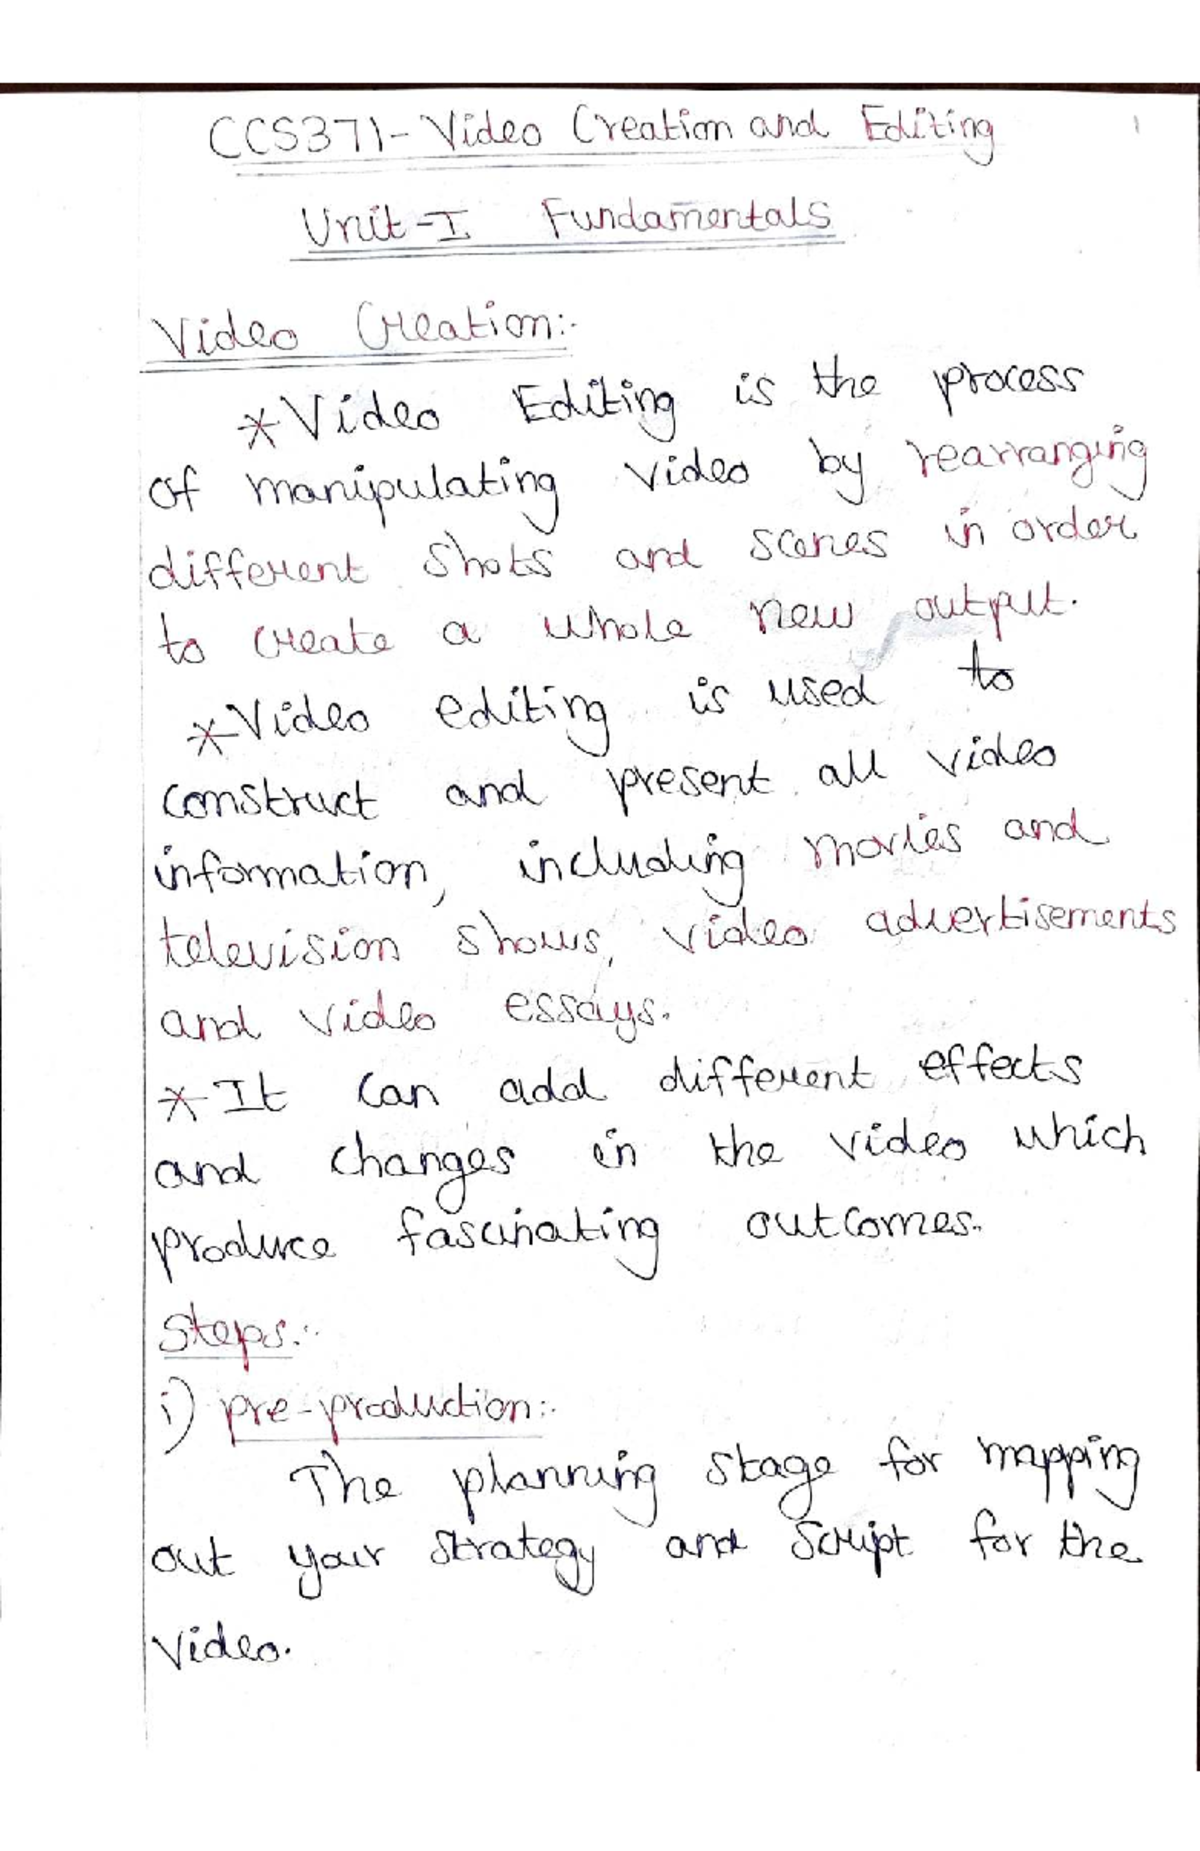 CCS371-Video Creation and Editing 1
Unit-I Fundamentals
Video Creation:-
*Video Editing is the process
of manipulating video by rearranging
different shots and scenes in order
to create a whole new output.
*Video editing is used to
construct and present all video
information, including movies and
television shows, video advertisements
and video essays.
*It can add different effects
and changes in the video which
produce fascinating outcomes.
Steps:-
i) pre-production:-
The planning stage for mapping
out your strategy and script for the
video.